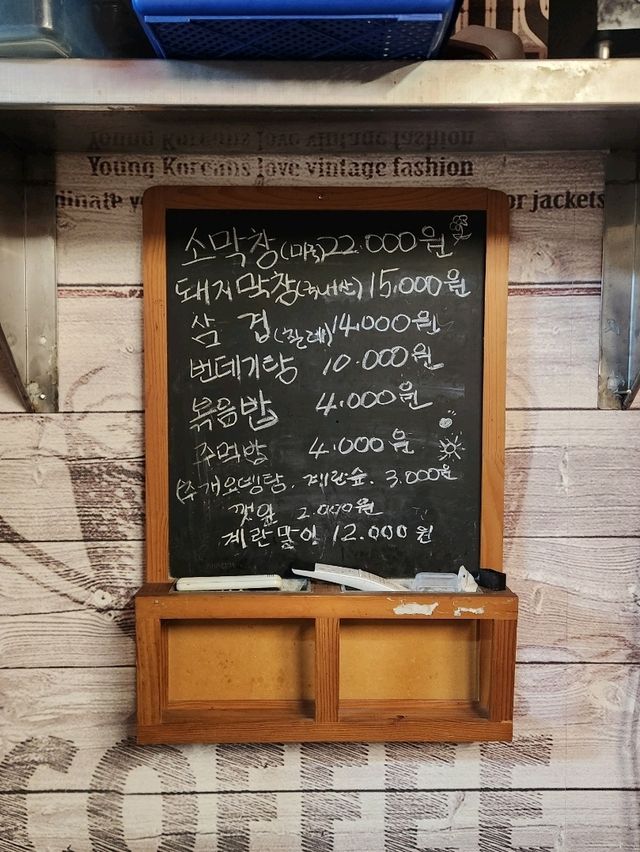 Young Koreans love vintage fashion
or jackets
소막창(미국)22.000원
돼지막창(국내산)15.000원
삼 겹(칠레)14.000원
번데기탕 10.000원
볶음밥 4.000원
주먹밥 4.000원
(추가오뎅탕. 계란숲. 3.000원
깻잎 2.000원
계란말이 12.000원
COFFEE